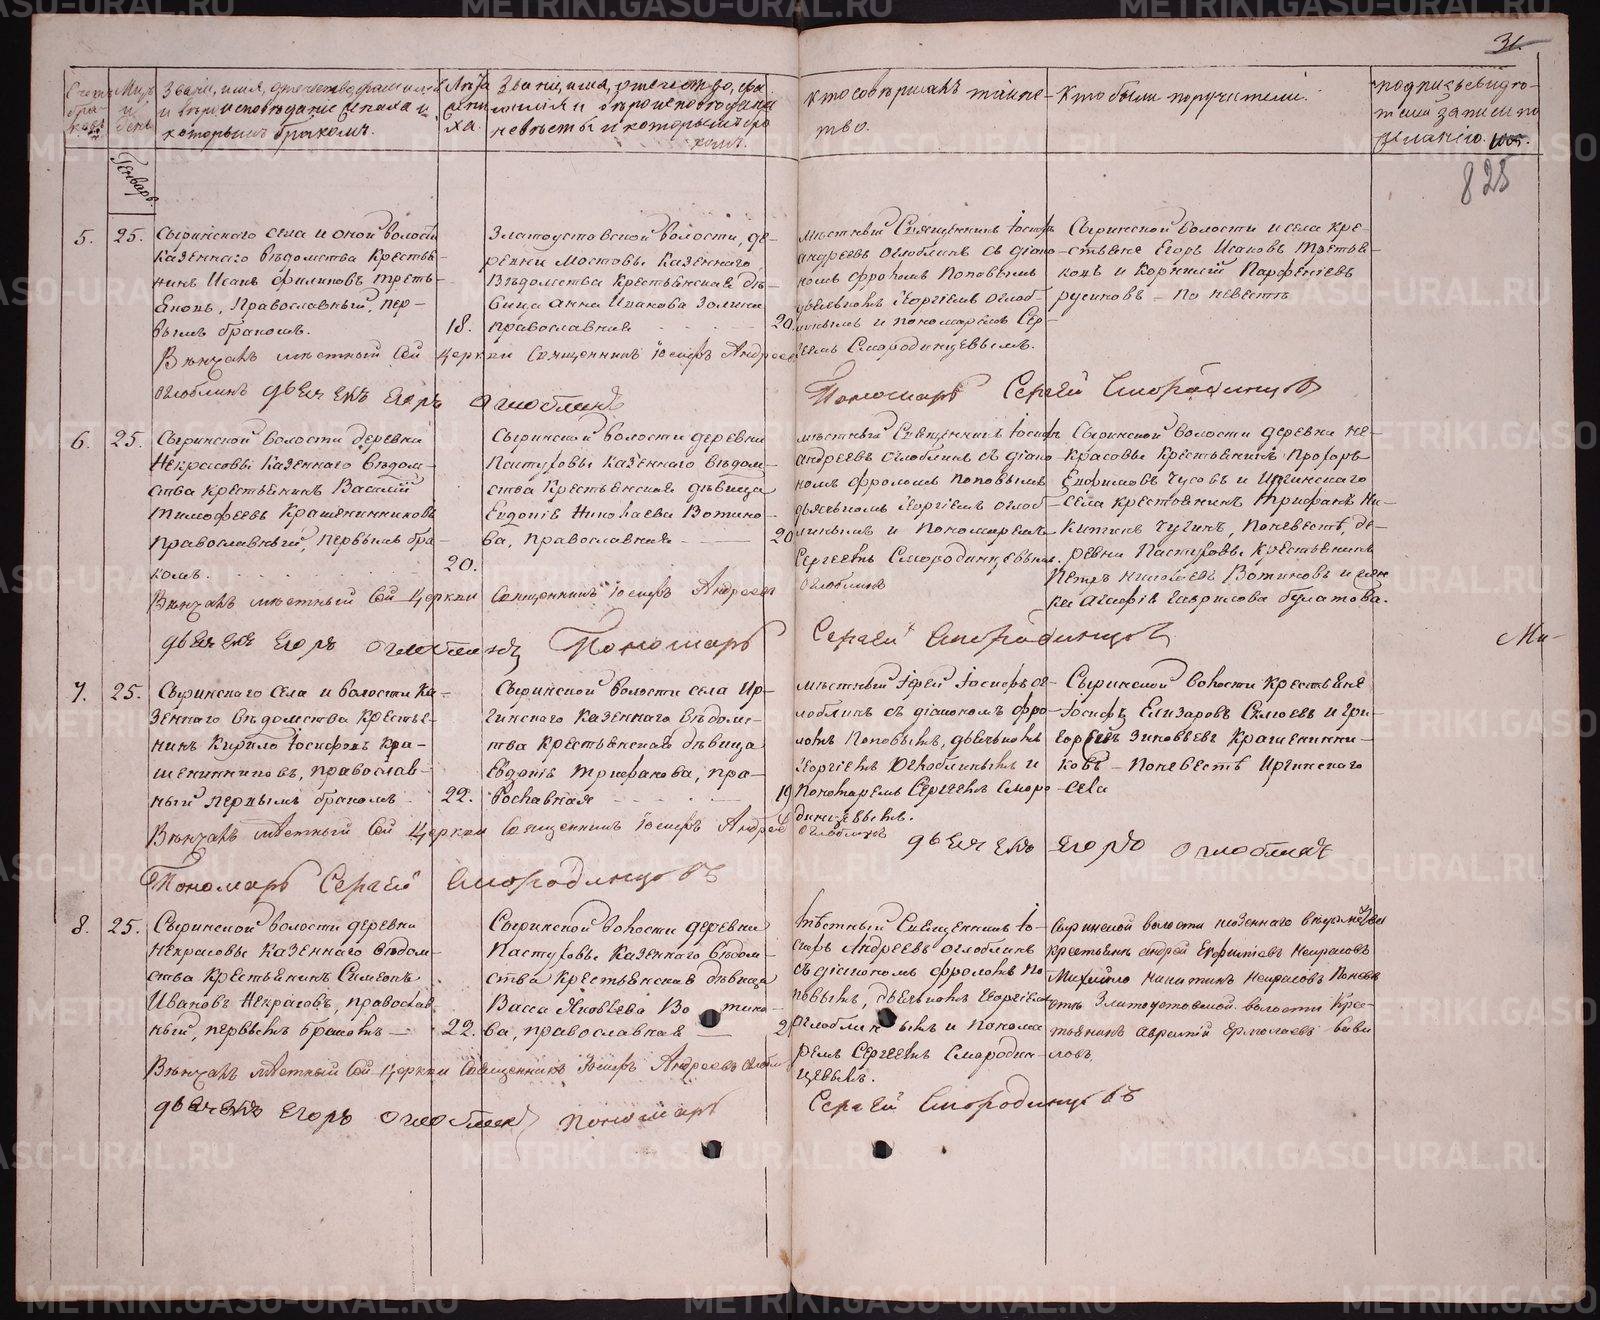 31.
Счетъ браковъ
Мцъ и день
Званіе, имя, отчество, фамилія и вѣроисповѣданіе жениха и которымъ бракомъ.
Лѣта жениха.
Званіе, имя, отчество, фамилія и вѣроисповѣданіе невѣсты и которымъ бракомъ.
Кто совершалъ таинство.
Кто были поручители.
подпись свидѣтелей записи по желанію.
825
Генварь
5.
25.
Сыринскаго села и оной волости
казеннаго вѣдомства крестья-
нинъ Исакъ Филиповъ Треть-
яковъ, Православный, пер-
вымъ бракомъ.
18.
Златоустовской волости, де-
ревни Мостовы казеннаго
вѣдомства крестьянская дѣ-
вица Анна Иванова Золина
православная
20.
мѣстный Священникъ Іосифъ
Андреевъ Оглоблинъ съ діако-
номъ Фроломъ Поповымъ
дьячькомъ Георгіемъ Оглоб-
линымъ и пономаремъ Сер-
геемъ Смородинцевымъ.
Сыринской волости и села кре-
стьяне Егоръ Исаковъ Третья-
ковъ и Корнилій Парфеніевъ
Русиновъ - По невестѣ
Вѣнчалъ мѣстный сей церкви Священникъ Іосифъ Андреевъ
Оглоблинъ дьячекъ Егоръ Оглоблинъ
Пономарь Сергѣй Смородинцовъ
6.
25.
Сыринской волости деревни
Некрасовы казеннаго вѣдом-
ства крестьянинъ Василій
Тимофеевъ Крашенинниковъ
православный, первымъ бра-
комъ.
20.
Сыринской волости деревни
Пастуховы казеннаго вѣдом-
ства крестьянская дѣвица
Евдокія Николаева Вотино-
ва, православная
20
мѣстный Священникъ Іосифъ
Андреевъ Оглоблинъ съ діако-
номъ Фроломъ Поповымъ
дьячькомъ Георгіемъ Оглоб-
линымъ и Пономаремъ
Сергеемъ Смородинцевымъ.
Сыринской волости деревни Не-
красовы крестьянинъ Прохоръ
Ефимовъ Чусовъ и Иргинскаго
села крестьянинъ Трифанъ Ни-
китинъ Чугинъ, Поневестѣ, де-
ревни Пастуховы крестьянинъ
Петръ Николаевъ Вотиновъ и
Агафія Гаврилова Булатова.
Вѣнчалъ мѣстный сей церкви Священникъ Іосифъ Андреевъ
Оглоблинъ
дьячекъ Егоръ Оглоблинъ Пономарь Сергѣй Смородинцовъ
Ми-
7.
25.
Сыринскаго села и волости Ка-
зеннаго вѣдомства крестья-
нинъ Кирило Іосифовъ Кра-
шенинниковъ, православ-
ный первымъ бракомъ
22.
Сыринской волости села Ир-
гинскаго казеннаго вѣдомс-
тва крестьянская дѣвица
Евдокія Трифанова, пра-
вославная
19
мѣстный Іерей Іосифъ Ог-
лоблинъ съ діакономъ Фро-
ломъ Поповымъ, дьячькомъ
Георгіемъ Оглоблинымъ и
Пономаремъ Сергеемъ Сморо-
динцевымъ.
Сыринской волости крестьяне
Іосифъ Елизаровъ и Гри-
горій Зиновьевъ Крашенинни-
ковъ - Поневестѣ Иргинскаго
села
Вѣнчалъ мѣстный сей церкви Священникъ Іосифъ Андреевъ
Оглоблинъ
дьячекъ Егоръ Оглоблинъ
Пономарь Сергѣй Смородинцовъ
8.
25.
Сыринской волости деревни
Некрасовы казеннаго вѣдом-
ства крестьянинъ Симеонъ
Ивановъ Некрасовъ, православ-
ный, первымъ бракомъ
22.
Сыринской волости деревни
Пастуховы казеннаго вѣдом-
ства крестьянская дѣвица
Васса Яковлева Вотино-
ва, православная
мѣстный Священникъ Іо-
сифъ Андреевъ Оглоблинъ
съ діакономъ Фроломъ По-
повымъ, дьячькомъ Георгіемъ
Оглоблинымъ и понома-
ремъ Сергеемъ Смородин-
цевымъ.
Сыринской волости казеннаго вѣдомства
крестьянинъ Андрей Некрасовъ
Михайло Никитинъ Некрасовъ Поневе-
стѣ Златоустовской волости крес-
тьянинъ Ермолаевъ Вави-
ловъ
Вѣнчалъ мѣстный сей церкви Священникъ Іосифъ Андреевъ
дьячекъ Егоръ Оглоблинъ пономарь
Сергѣй Смородинцовъ
METRIKI.GASO-URAL.RU